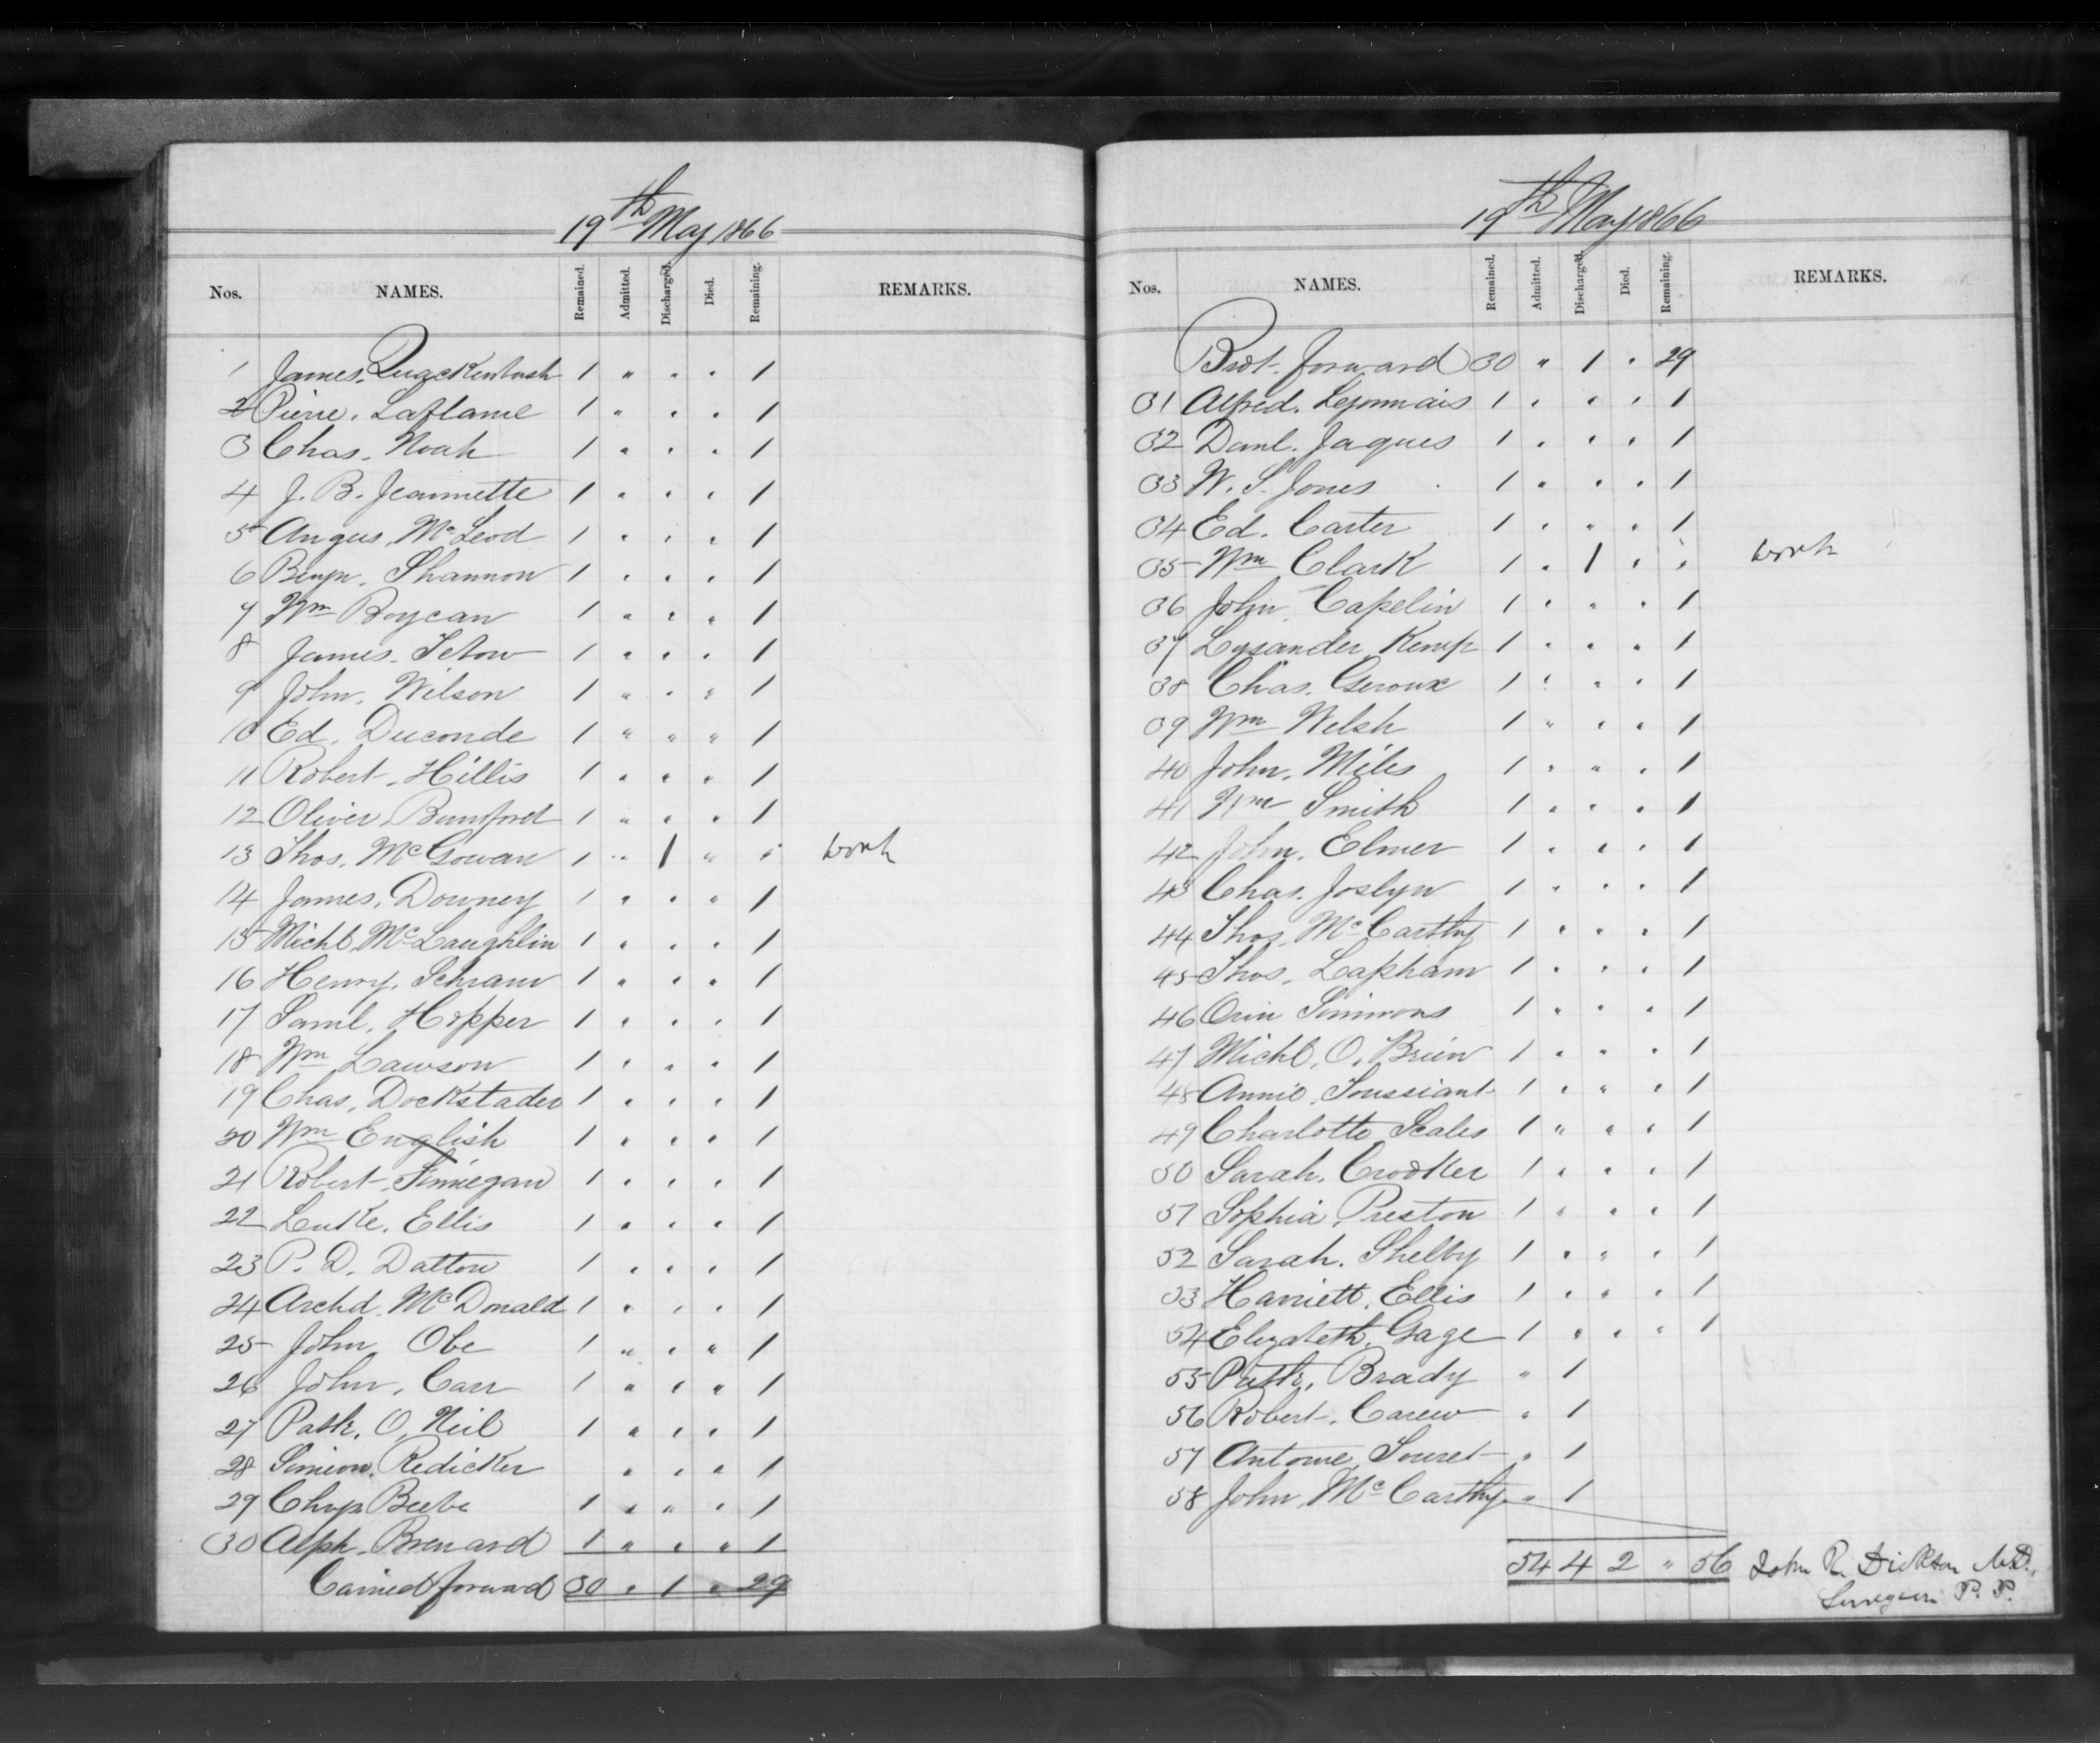 19th May 1866
Nos. NAMES. Remained. Admitted. Discharged. Died. Remaining. REMARKS.
1 James. Quackenbush 1 " " " 1
2 Pierre. Laflame 1 " " " 1
3 Chas. Noah 1 " " " 1
4 J. B. Jeannette 1 " " " 1
5 Angus McLeod 1 " " " 1
6 Benjn. Shannon 1 " " " 1
7 Wm Boycan 1 " " " 1
8 James. 1 " " " 1
9 John. Wilson 1 " " " 1
10 Ed. Duconde 1 " " " 1
11 Robert. Hillis 1 " " " 1
12 Oliver. Bumford 1 " " " 1
13 Thos. McGowan 1 " 1 " " work
14 James. Downey 1 " " " 1
15 Michl McLaughlin 1 " " " 1
16 Henry. Schram 1 " " " 1
17 Saml. Hopper 1 " " " 1
18 Wm Lawson 1 " " " 1
19 Chas. Dockstader 1 " " " 1
20 Wm English 1 " " " 1
21 Robert. Finnegan 1 " " " 1
22 Luke. Ellis 1 " " " 1
23 P. D. Datton 1 " " " 1
24 Archd. McDonald 1 " " " 1
25 John Obe 1 " " " 1
26 John. Carr 1 " " " 1
27 Patk. O, Neil 1 " " " 1
28 Simeon. Redicker " " " 1
29 Chrys Beebe 1 " " " 1
30 Alph. Brenard 1 " " " 1
Carried forward 30 " 1 " 29
19th May 1866
Nos. NAMES. Remained. Admitted. Discharged. Died. Remaining. REMARKS.
Brot. forward 30 " 1 " 29
31 Alfred. Lejonnais 1 " " " 1
32 Danl. Jaques 1 " " " 1
33 W. S. Jones 1 " " " 1
34 Ed. Carter 1 " " " 1
35 Wm Clark 1 " 1 " " work
36 John. Capelin 1 " " " 1
37 Lysander Kemp 1 " " " 1
38 Chas. Geroux 1 " " " 1
39 Wm Welsh 1 " " " 1
40 John. Miles 1 " " " 1
41 Wm Smith 1 " " " 1
42 John. Elmer 1 " " " 1
43 Chas. Joslyn 1 " " " 1
44 Thos. McCarthy 1 " " " 1
45 Thos. Lapham 1 " " " 1
46 Orin Simmons 1 " " " 1
47 Michl. O, Brien 1 " " " 1
48 Annie. Toussiant 1 " " " 1
49 Charlotte Scales 1 " " " 1
50 Sarah. Crooker 1 " " " 1
51 Sophia Preston 1 " " " 1
52 Sarah. Shelby 1 " " " 1
53 Harriett. Ellis 1 " " " 1
54 Elizabeth. Gage 1 " " " 1
55 Patk. Brady " 1
56 Robert. Carew " 1
57 Antome. Souret " 1
58 John. McCarthy " 1
54 4 2 " 56 John R. Dickson M.D.,
Surgeon P. P.